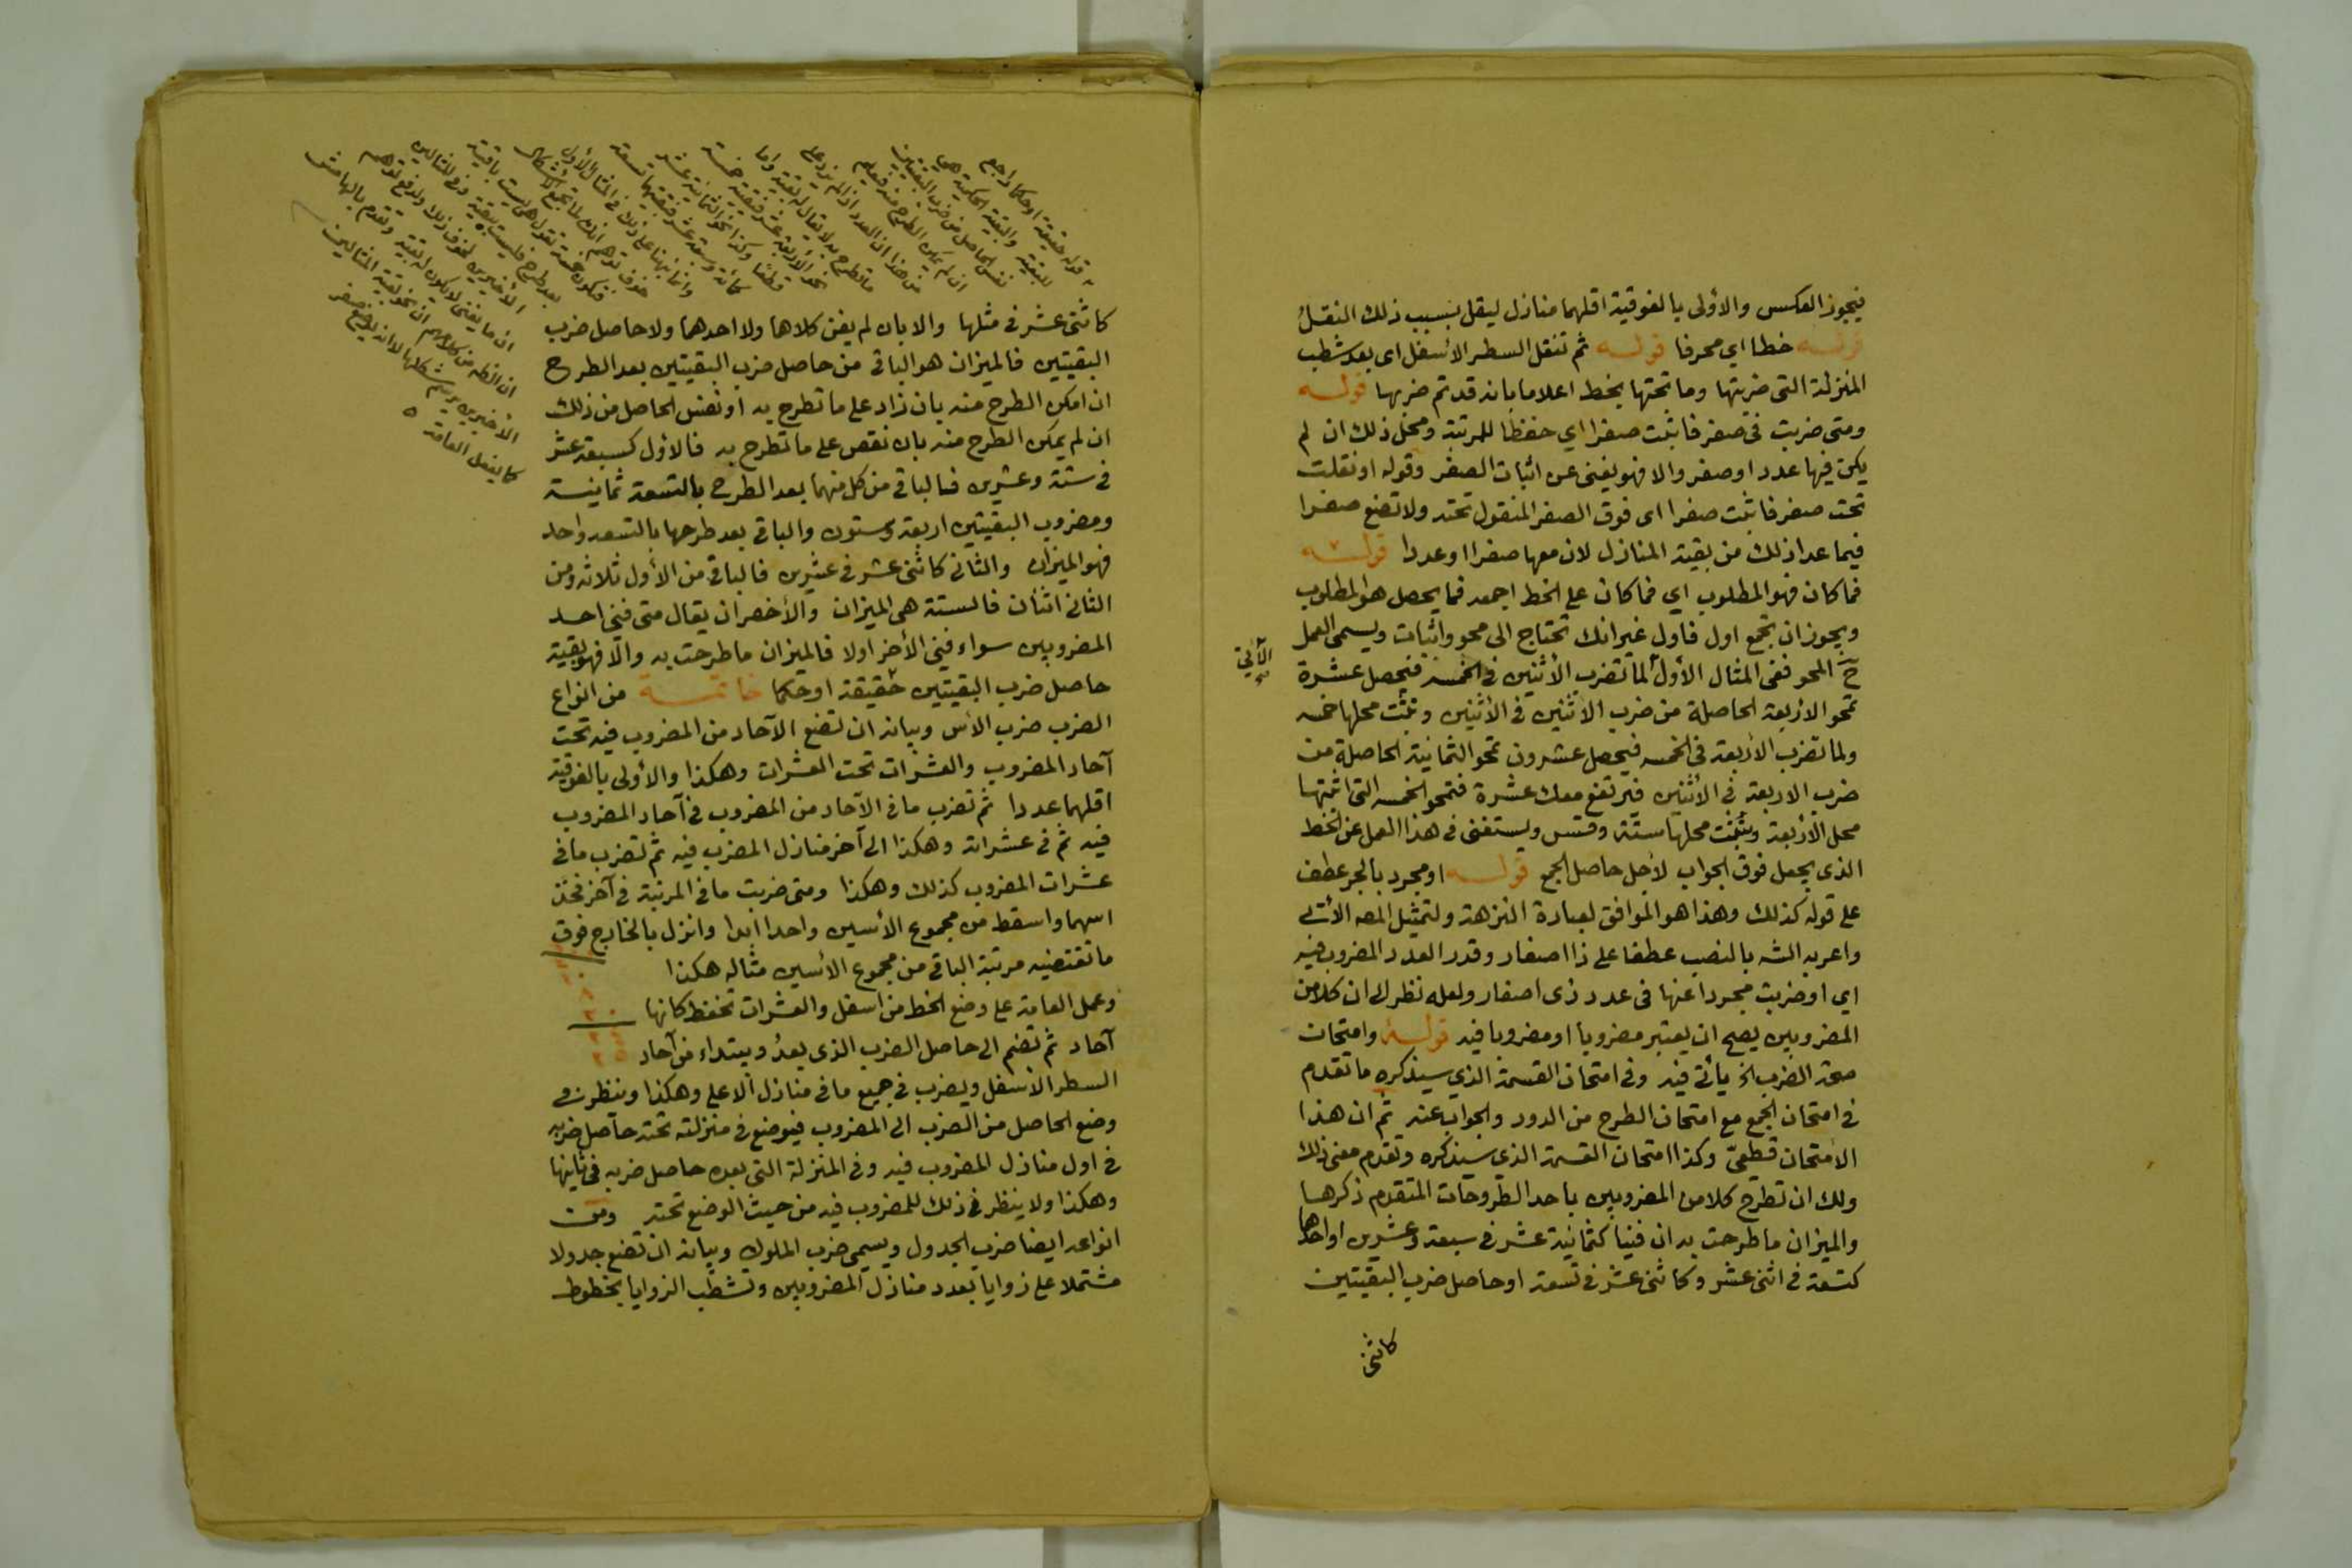 فيجوز العكس والأولى بالفوقية اقلهما منازل ليقل بسبب ذلك النقل
قوله خطا اي محرفا قوله ثم تنقل السطر الأسفل اى بعد شطب
المنزلة التى ضربتها وما تحتها بخط اعلاما بانه قد تم ضربها قوله
ومتى ضربت فى صفر فاثبت صفرا اي حفظا للمرتبة ومحل ذلك ان لم
يكن فيها عدد او صفر والا فهو يغنى عن اثبات الصفر وقوله او نقلت
تحت صفر فاثبت صفرا اى فوق الصفر المنقول تحته ولا تضع صفرا
فيما عدا ذلك من بقية المنازل لان معها صفرا او عددا قوله
فما كان فهو المطلوب اي فما كان على الخط اجمعه فما يحصل هو المطلوب
ويجوز ان تجمع اول فاول غير انك تحتاج الى محو واثبات ويسمى العمل
ح المحو ففى المثال الأول لما تضرب الأثنين فى الخمسة فتحصل عشرة
الآتى
تمحو الاربعة الحاصلة من ضرب الاثنين فى الأثنين وتثبت محلها خمسه
ولما تضرب الأربعة فى الخمسه فيحصل عشرون تمحو الثمانية الحاصلة من
ضرب الاربعة فى الأثنين فيرتفع معك عشرة فتمحو الخمسه التى اثبتها
محل الأربعة وتثبت محلها ستة وقس ويستغنى فى هذا العمل عن الخط
الذى يجعل فوق الجواب لأجل حاصل الجمع قوله او مجرد بالجر عطف
على قوله كذلك وهذا هو الموافق لعبارة النزهة ولتمثيل المص الأتى
واعربه الشه بالنصب عطفا على ذا اصفار وقدر العدد المضروب فيه
اي او ضربت مجردا عنها فى عدد ذى اصفار ولعله نظر الى ان كلا من
المضروبين يصح ان يعتبر مضروبا او مضروبا فيه قوله وامتحان
صحة الضرب الخ يأتى فيه وفى امتحان القسمة الذي سيذكره ما تقدم
فى امتحان الجمع مع امتحان الطرح من الدور والجواب عنه ثم ان هذا
الأمتحان قطعىّ وكذا امتحان القسمة الذى سيذكره وتقدم معنى ذلك
ولك ان تطرح كلا من المضروبين باحد الطروحات المتقدم ذكرها
والميزان ما طرحت به ان فنيا كثمانية عشر فى سبعة وعشرين او احدها
كتسعة فى اثنى عشر وكاثنى عشر فى تسعة او حاصل ضرب البقيتين
كاثنى
قوله حقيقة او حكما راجع
للبقية والبقية الحكمية هي
نفس الحاصل من ضرب البقيتين
ان لم يمكن الطرح منه فيعلم
من هذا ان العدد اذا لم يزد على
ما تطرح به لا يقال له بقية واما
كاثنى عشر فى مثلها والا بان لم يفن كلاها ولا احدهما ولا حاصل ضرب
البقيتين فالميزان هو الباقى من حاصل ضرب البقيتين بعد الطرح
ان امكن الطرح منه بان زاد على ما تطرح به او نفس الحاصل من ذلك
ان لم يمكن الطرح منه بان نقص على ما تطرح به فالاول كسبعة عشر
فى ستة وعشرين فالباقى من كل منهما بعد الطرح بالتسعة ثمانية
ومضروب البقيتين اربعة وستون والباقى بعد طرحها بالتسعه واحد
فهو الميزان والثانى كاثنى عشر فى عشرين فالباقى من الأول ثلاثه ومن
الثانى اثنان فالستة هى الميزان والأخصر ان يقال متى فنى احد
المضروبين سواء فنى الأخر اولا فالميزان ما طرحت به والا فهو بقية
حاصل ضرب البقيتين حقيقة او حكما خاتمة من انواع
الضرب ضرب الأس وبيانه ان تضع الآحاد من المضروب فيه تحت
آحاد المضروب والعشرات تحت العشرات وهكذا والأولى بالفوقية
اقلهما عددا ثم تضرب ما فى الآحاد من المضروب فى آحاد المضروب
فيه ثم فى عشراته وهكذا الى آخر منازل المضرب فيه ثم تضرب ما فى
عشرات المضروب كذلك وهكذا ومتى ضربت ما فى المرتبة فى آخر فخذ
اسهما واسقط من مجموع الأسين واحدا ابدا وانزل بالخارج فوق
ما تقتضيه مرتبة الباقى من مجموع الأسين مثاله هكذا
وعمل العامة على وضع الخط من اسفل والعشرات تحفظ كانها
آحاد ثم تضم الى حاصل الضرب الذى بعدُ ويبتداء من آحاد
السطر الأسفل ويضرب فى جميع ما فى منازل الاعلى وهكذا وينظر فى
وضع الحاصل من الضرب الى المضروب فيوضع فى منزلته تحته حاصل ضربه
فى اول منازل المضروب فيه وفى المنزلة التى بعده حاصل ضربه فى ثانيها
وهكذا ولا ينظر فى ذلك للمضروب فيه من حيث الوضع تحته ومن
انواعه ايضا ضرب الجدول ويسمى ضرب الملوك وبيانه ان تضع جدولا
مشتملا على زوايا بعدد منازل المضروبين وتشطب الزوايا بخطوط